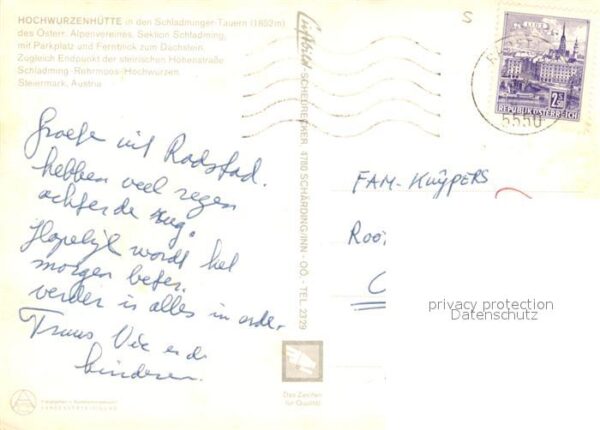 HOCHWURZENHÜTTE in den Schladminger-Tauern (1852m)
des Österr. Alpenvereines, Sektion Schladming,
mit Parkplatz und Fernblick zum Dachstein.
Zugleich Endpunkt der steirischen Höhenstraße
Schladming-Rohrmoos-Hochwurzen.
Steiermark, Austria
Groeten uit Radstad.
hebben veel regen
achter de rug.
Hopelijk wordt het
morgen beter.
verder is alles in orde.
Frans
en de
kinderen.
Luftbild SCHEUERECKER, 4780 SCHÄRDING/INN - OÖ. - TEL. 2329
Das Zeichen
für Qualität
S
LINZ
2S
REPUBLIK ÖSTERREICH
5550
FAM-KUŸPERS
ROO
C
privacy protection
Datenschutz